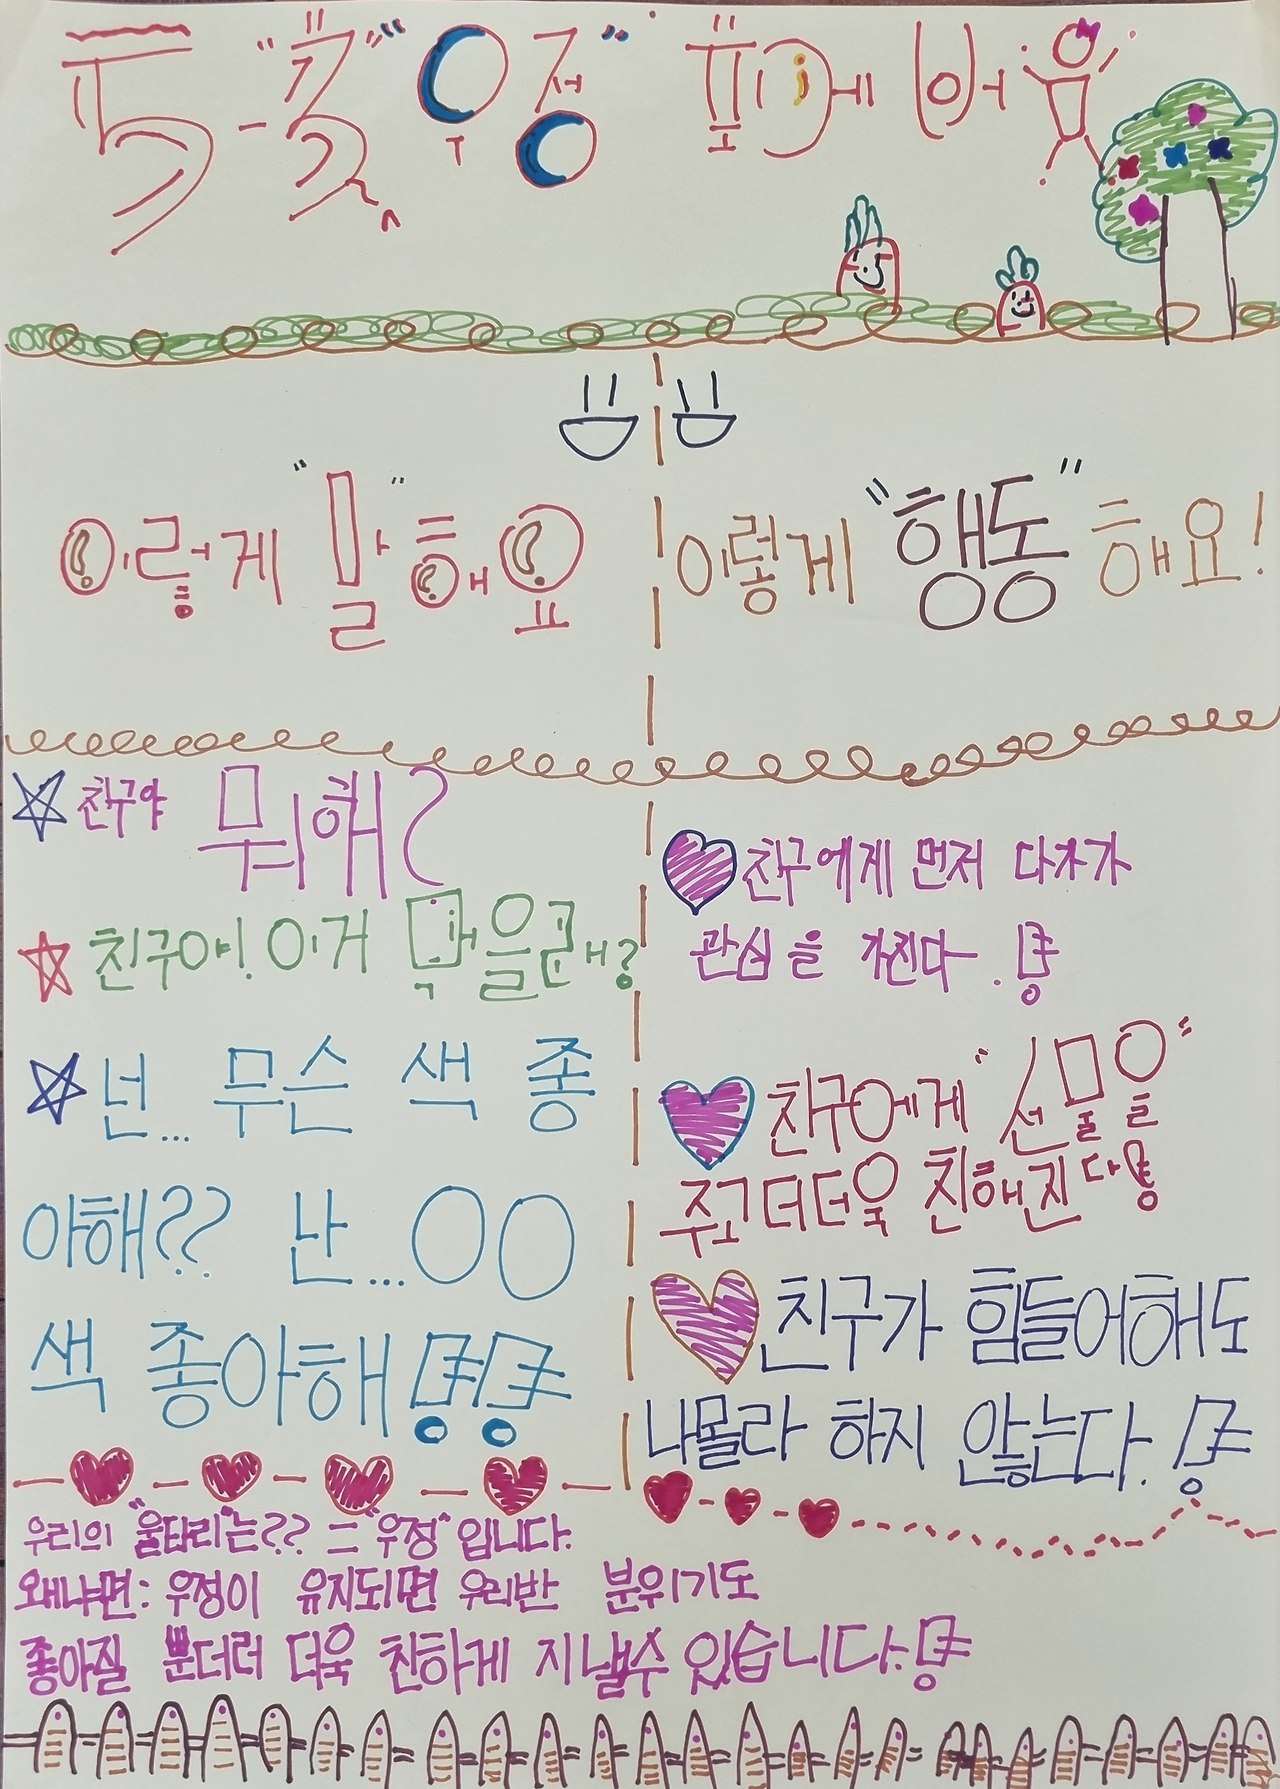 "우정"
이렇게 "말" 해요
이렇게 "행동" 해요!
친구야 뭐해?
친구야! 이거 먹을래?
넌... 무슨 색 좋
아해?? 난...OO
색 좋아해!!
친구에게 먼저 다가가
관심을 가진다.!
친구에게 "선물을"
주고 더더욱 친해진다!
친구가 힘들어해도
나몰라 하지 않는다.!
우리의 "울타리"는?? = "우정" 입니다.
왜냐면: 우정이 유지되면 우리반 분위기도
좋아질 뿐더러 더욱 친하게 지낼수 있습니다.!